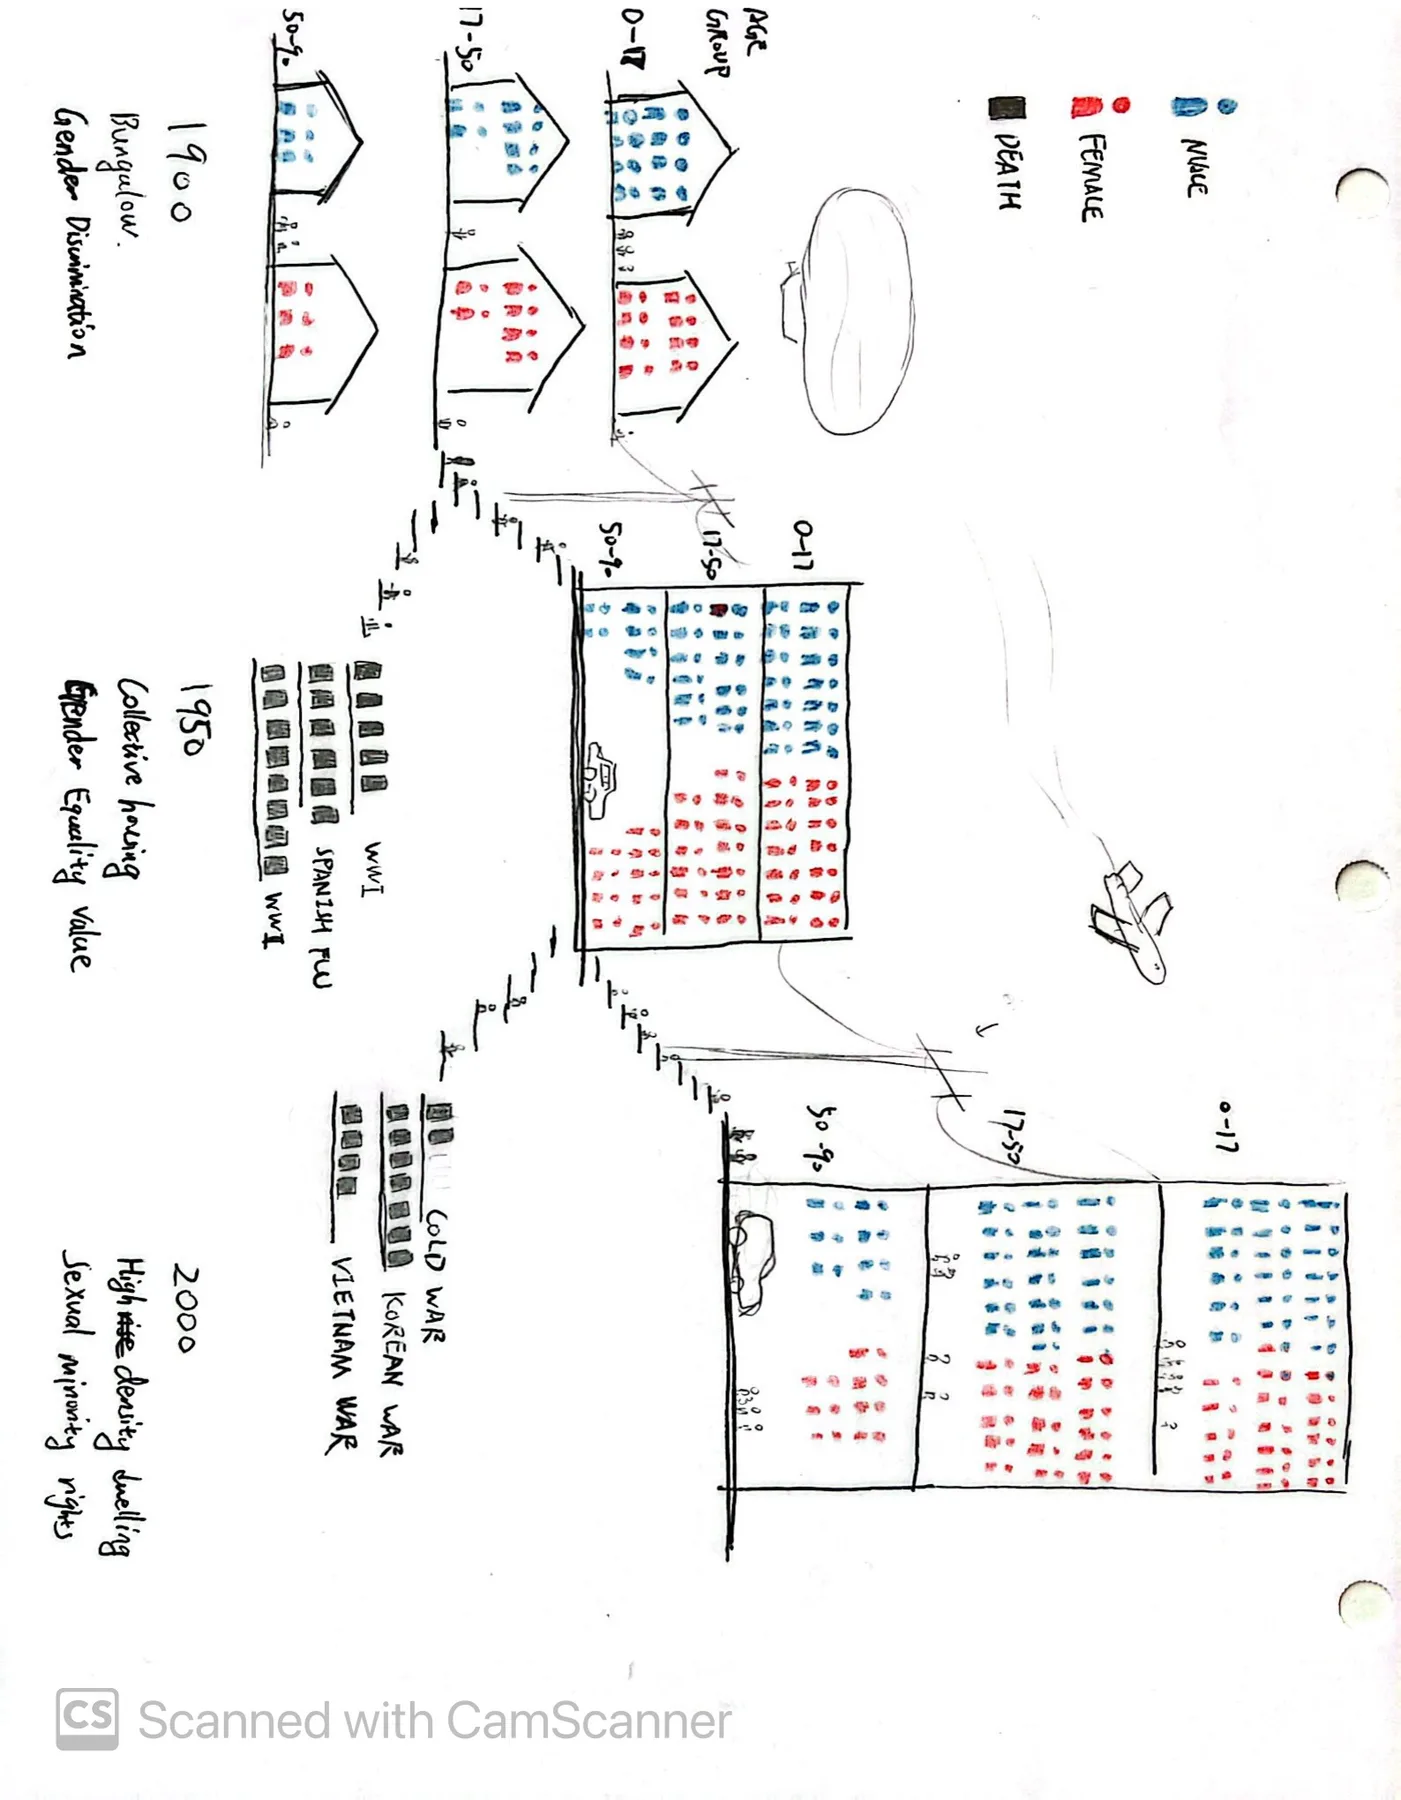 MALE
FEMALE
DEATH
AGE
GROUP
0-17
17-50
50-90
0-17
17-50
50-90
0-17
17-50
50-90
WWI
SPANISH FLU
WWII
COLD WAR
KOREAN WAR
VIETNAM WAR
1900
Bungalow.
Gender Discrimination
1950
Collective housing
Gender Equality value
2000
High density dwelling
Sexual minority rights
CS Scanned with CamScanner